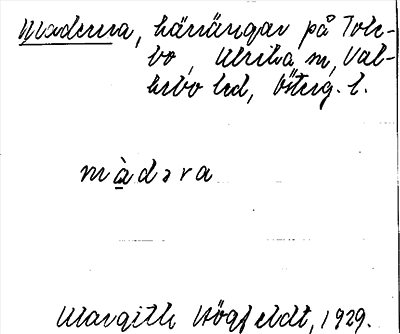 Maderna, hänängar på Tole-
bo, Ulrika m, Val-
kebo hd, Österg. l.
màdəra
Margith Högfeldt, 1929.